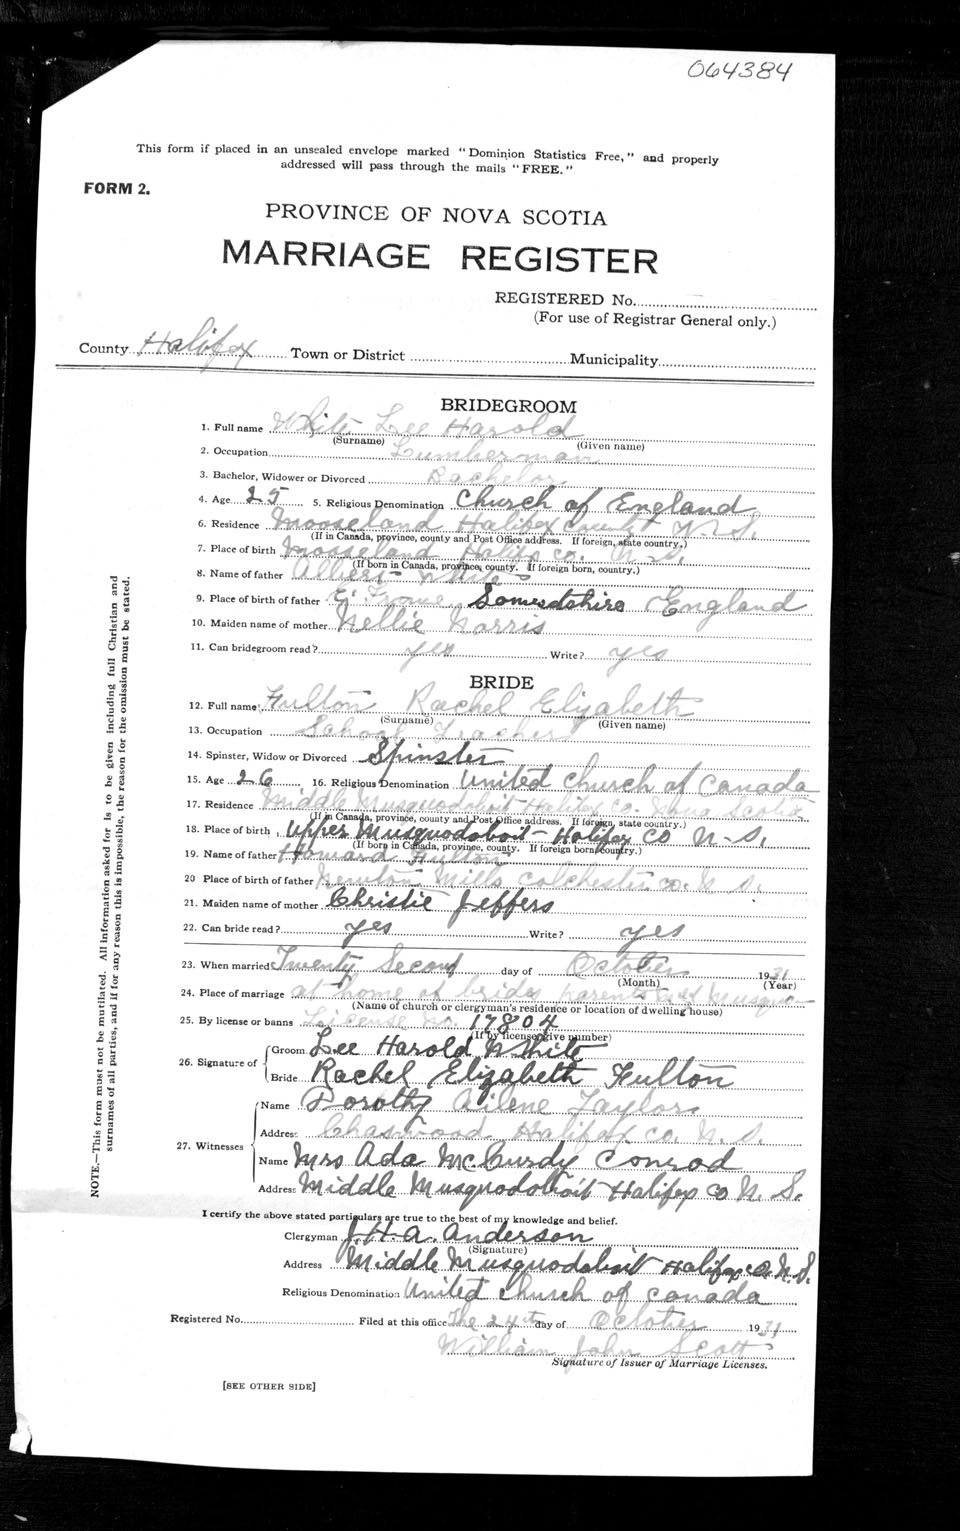 064384
This form if placed in an unsealed envelope marked "Dominion Statistics Free," and properly
addressed will pass through the mails "FREE."
FORM 2.
PROVINCE OF NOVA SCOTIA
MARRIAGE REGISTER
REGISTERED No.
(For use of Registrar General only.)
County Halifax Town or District Municipality
BRIDEGROOM
1. Full name White Lee Harold
(Surname) (Given name)
2. Occupation Lumberman
3. Bachelor, Widower or Divorced Bachelor
4. Age 25 5. Religious Denomination Church of England
6. Residence Mooseland Halifax County N.S.
(If in Canada, province, county and Post Office address. If foreign, state country.)
7. Place of birth Mooseland Halifax Co. N.S.
(If born in Canada, province, county. If foreign born, country.)
8. Name of father Albert White
9. Place of birth of father E. Frome Somerdshire England
10. Maiden name of mother Nellie Norris
11. Can bridegroom read? yes Write? yes
BRIDE
12. Full name Fulton Rachel Elizabeth
(Surname) (Given name)
13. Occupation School Teacher
14. Spinster, Widow or Divorced Spinster
15. Age 26 16. Religious Denomination United Church of Canada
17. Residence Middle Musquodoboit Halifax Co. Nova Scotia
(If in Canada, province, county and Post Office address. If foreign, state country.)
18. Place of birth Upper Musquodoboit - Halifax Co N-S.
(If born in Canada, province, county. If foreign born country.)
19. Name of father Howard Fulton
20 Place of birth of father Newton Mills Colchester Co. N.S.
21. Maiden name of mother Christie Jeffers
22. Can bride read? yes Write? yes
23. When married Twenty Second day of October 1931
(Month) (Year)
24. Place of marriage at home of brides parents Musquo
(Name of church or clergyman's residence or location of dwelling house)
25. By license or banns License no. 17804
(If by license give number)
26. Signature of Groom Lee Harold White
Bride Rachel Elizabeth Fulton
27. Witnesses Name Dorothy Ailene Taylor
Address Chaswood Halifax Co. N.S.
Name Mrs Ada McCurdy Conrod
Address Middle Musquodoboit Halifax Co N.S.
I certify the above stated particulars are true to the best of my knowledge and belief.
Clergyman J.H.A. Anderson
(Signature)
Address Middle Musquodoboit Halifax Co. N.S.
Religious Denomination United Church of Canada
Registered No. Filed at this office The 24th day of October 1931
William John Scott
Signature of Issuer of Marriage Licenses.
[SEE OTHER SIDE]
NOTE.—This form must not be mutilated. All information asked for is to be given including full Christian and
surnames of all parties, and if for any reason this is impossible, the reason for the omission must be stated.